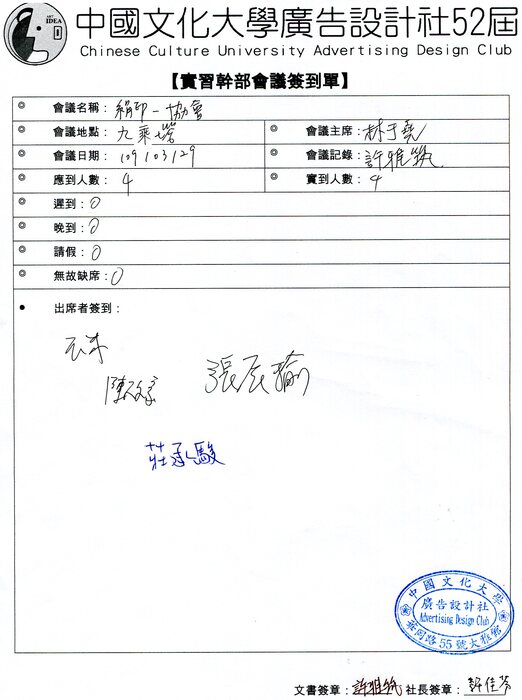 ART
IDEA
中國文化大學廣告設計社52屆
Chinese Culture University Advertising Design Club
【實習幹部會議簽到單】
◎ 會議名稱：絹印一協會
◎ 會議地點：九乘塔 ◎ 會議主席：林于堯
◎ 會議日期：109/03/29 ◎ 會議記錄：許雅筑
◎ 應到人數：4 ◎ 實到人數：4
◎ 遲到：0
◎ 晚到：0
◎ 請假：0
◎ 無故缺席：0
● 出席者簽到：
張辰瑜
莊承駿
中國文化大學
廣告設計社
Advertising Design Club
華岡路55號大雅館
文書簽章：許雅筑 社長簽章：許佳芩